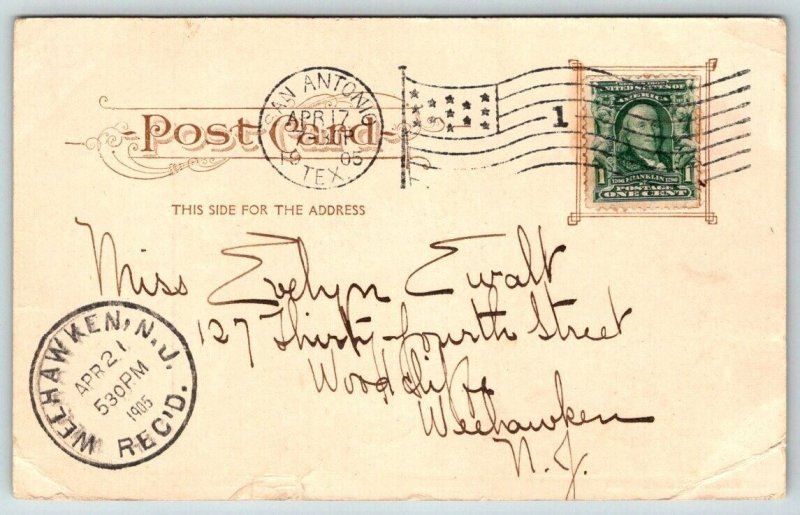 Post Card
SAN ANTONIO
APR 17
19 05
TEX.
1
UNITED STATES OF
AMERICA
FRANKLIN
1 POSTAGE 1
ONE CENT
THIS SIDE FOR THE ADDRESS
Miss Evelyn Ewalt
127 Thirty-fourth Street
Woodcliffe
Weehawken
N. J.
WEEHAWKEN, N.J.
APR 21
530PM
1905
REC'D.